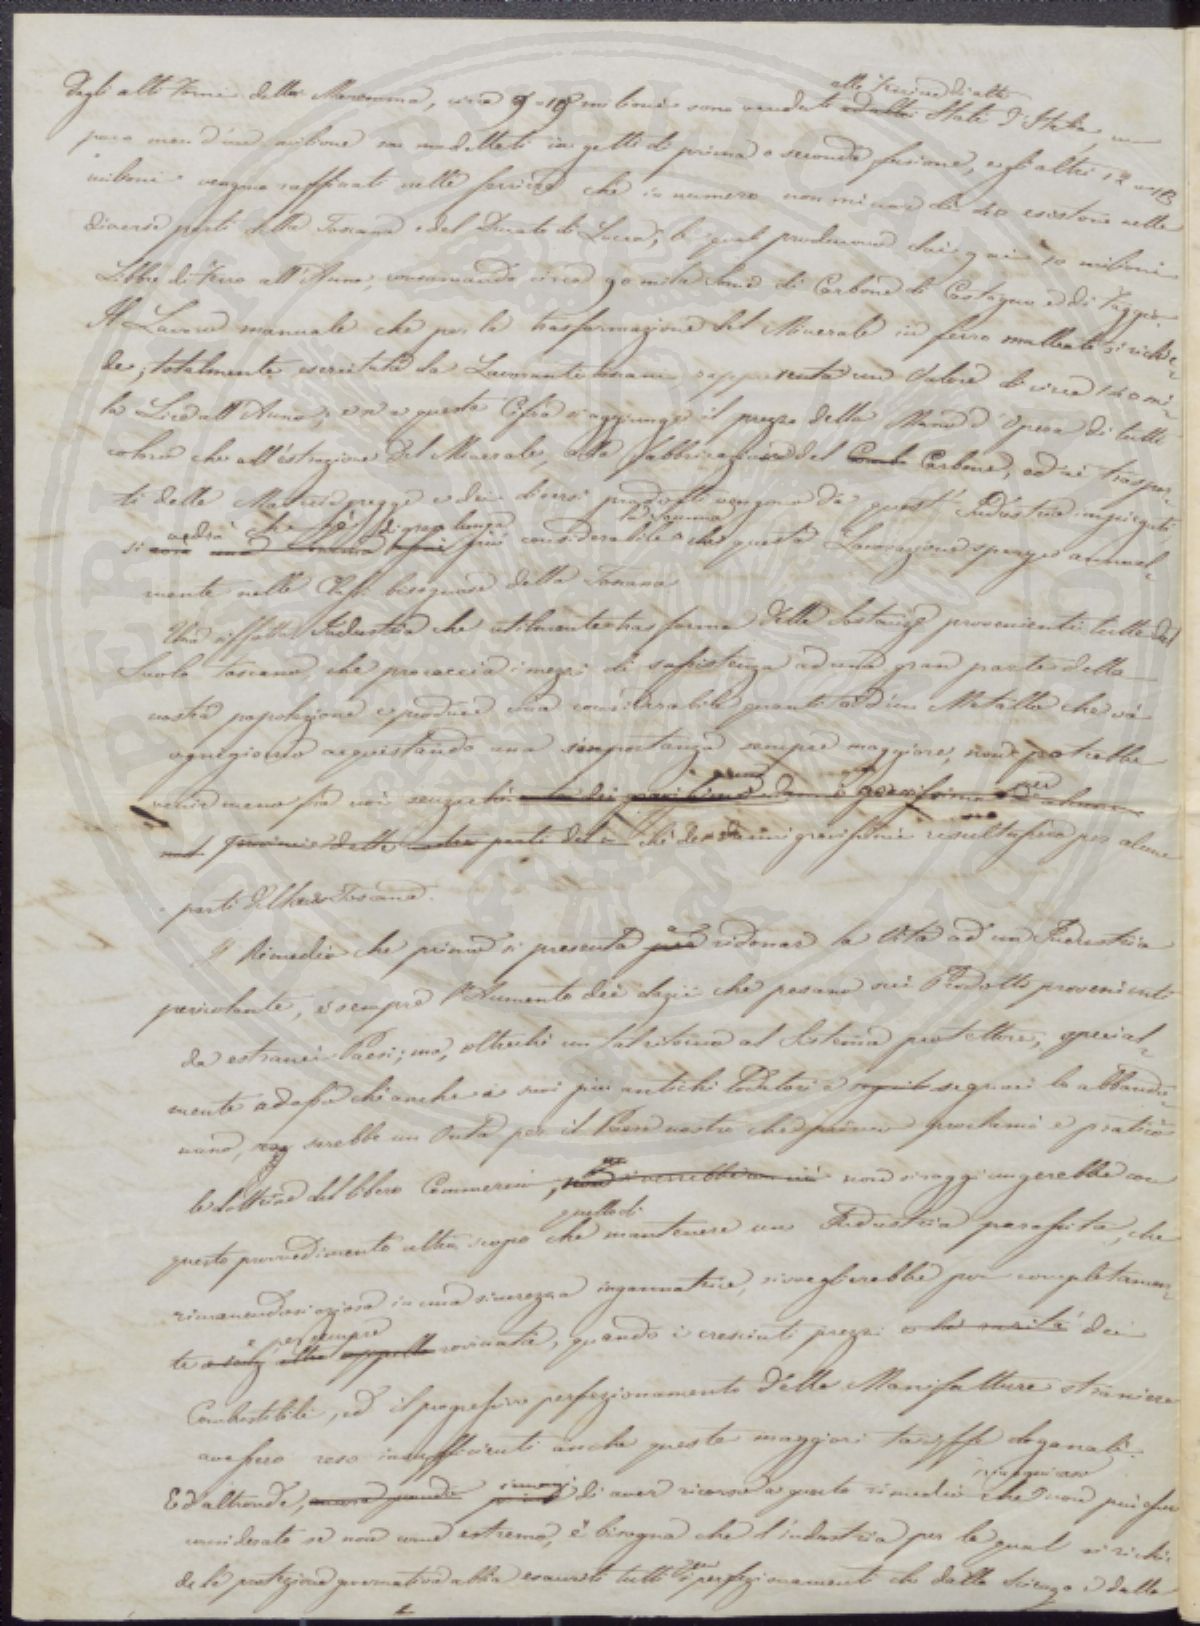 degli alti Forni della Maremma, circa 9 a 10 milioni sono venduti alle Ferriere di altri Stati d'Italia, un
poco men d'un milione son modellati in getti di prima o seconda fusione, e gli altri 12 a 13
milioni vengono raffinati nelle ferriere che in numero non minor di 40 esistono nelle
diverse parti della Toscana e del Ducato di Lucca, le quali producono dai 9 ai 10 milioni
Libbre di Ferro all'Anno, consumando circa 90 mila Some di Carbone di Castagno e di Faggio.
Il Lavoro manuale che per la trasformazione del Minerale in ferro malleabile si richie-
de, totalmente esercitata da Lavoranti rappresenta un Valore di circa 140 mi-
la Lire all'Anno, e se a questa Cifra si aggiunge il prezzo della Mano d'Opera di tutti
coloro che all'estrazione del Minerale, alla fabbricazione del Carbone, ed ai traspor-
ti delle Materie gregge e dei diversi prodotti vengono da quest'Industria impiegati,
si vedrà che è di gran lunga più considerabile la somma che questa Lavorazione sparge annual-
mente nelle Classi bisognose della Toscana.
Una siffatta Industria che utilmente trasforma delle Sostanze provenienti tutte dal
Suolo toscano, che procaccia i mezzi di sussistenza ad una gran parte della
nostra popolazione e produce una considerabile quantità d'un Metallo che và
ogni giorno acquistando una importanza sempre maggiore, non potrebbe
venir meno fra noi senza che
delle parti del che dei danni gravissimi resultassero per alcune
parti della Toscana.
Il Rimedio che primo si presenta a ridonar la Vita ad un Industria
pericolante, è sempre l'Aumento dei dazii che pesano sui Prodotti provenienti
da estranei Paesi; ma, oltrechè un tal ritorno al Sistema protettore, special-
mente adesso che anche i suoi più antichi Fautori e seguaci lo abbando-
nano, sarebbe un Onta per il Paese nostro che primo proclamò e praticò
le dottrine del libero Commercio, non si raggiungerebbe con
questo provvedimento altro scopo che quello di mantenere un Industria parassita, che
rimanendosi oziosa in una sicurezza ingannatrice, si sveglierebbe poi completamen-
te e per sempre rovinata, quando i cresciuti prezzi o la rarità dei
Combustibili, ed il progressivo perfezionamento delle Manifatture straniere
avessero reso insufficienti anche queste maggiori tariffe doganali.
Ed altronde, innanzi di aver ricorso a questo rimedio che in ogni caso non può esser
considerato se non come estremo, è bisogna che l'industria per la qual si richie-
de la protezione governativa abbia esauriti tutti quei perfezionamenti che dalla Scienza e dalla